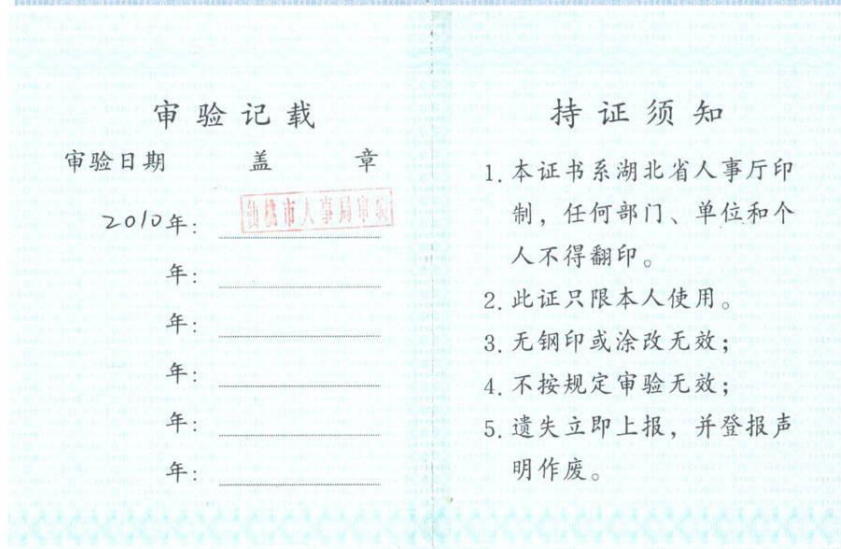 审验记载
审验日期 盖 章
2010年：
仙桃市人事局审验
年：
年：
年：
年：
年：
持证须知
1. 本证书系湖北省人事厅印
制，任何部门、单位和个
人不得翻印。
2. 此证只限本人使用。
3. 无钢印或涂改无效；
4. 不按规定审验无效；
5. 遗失立即上报，并登报声
明作废。